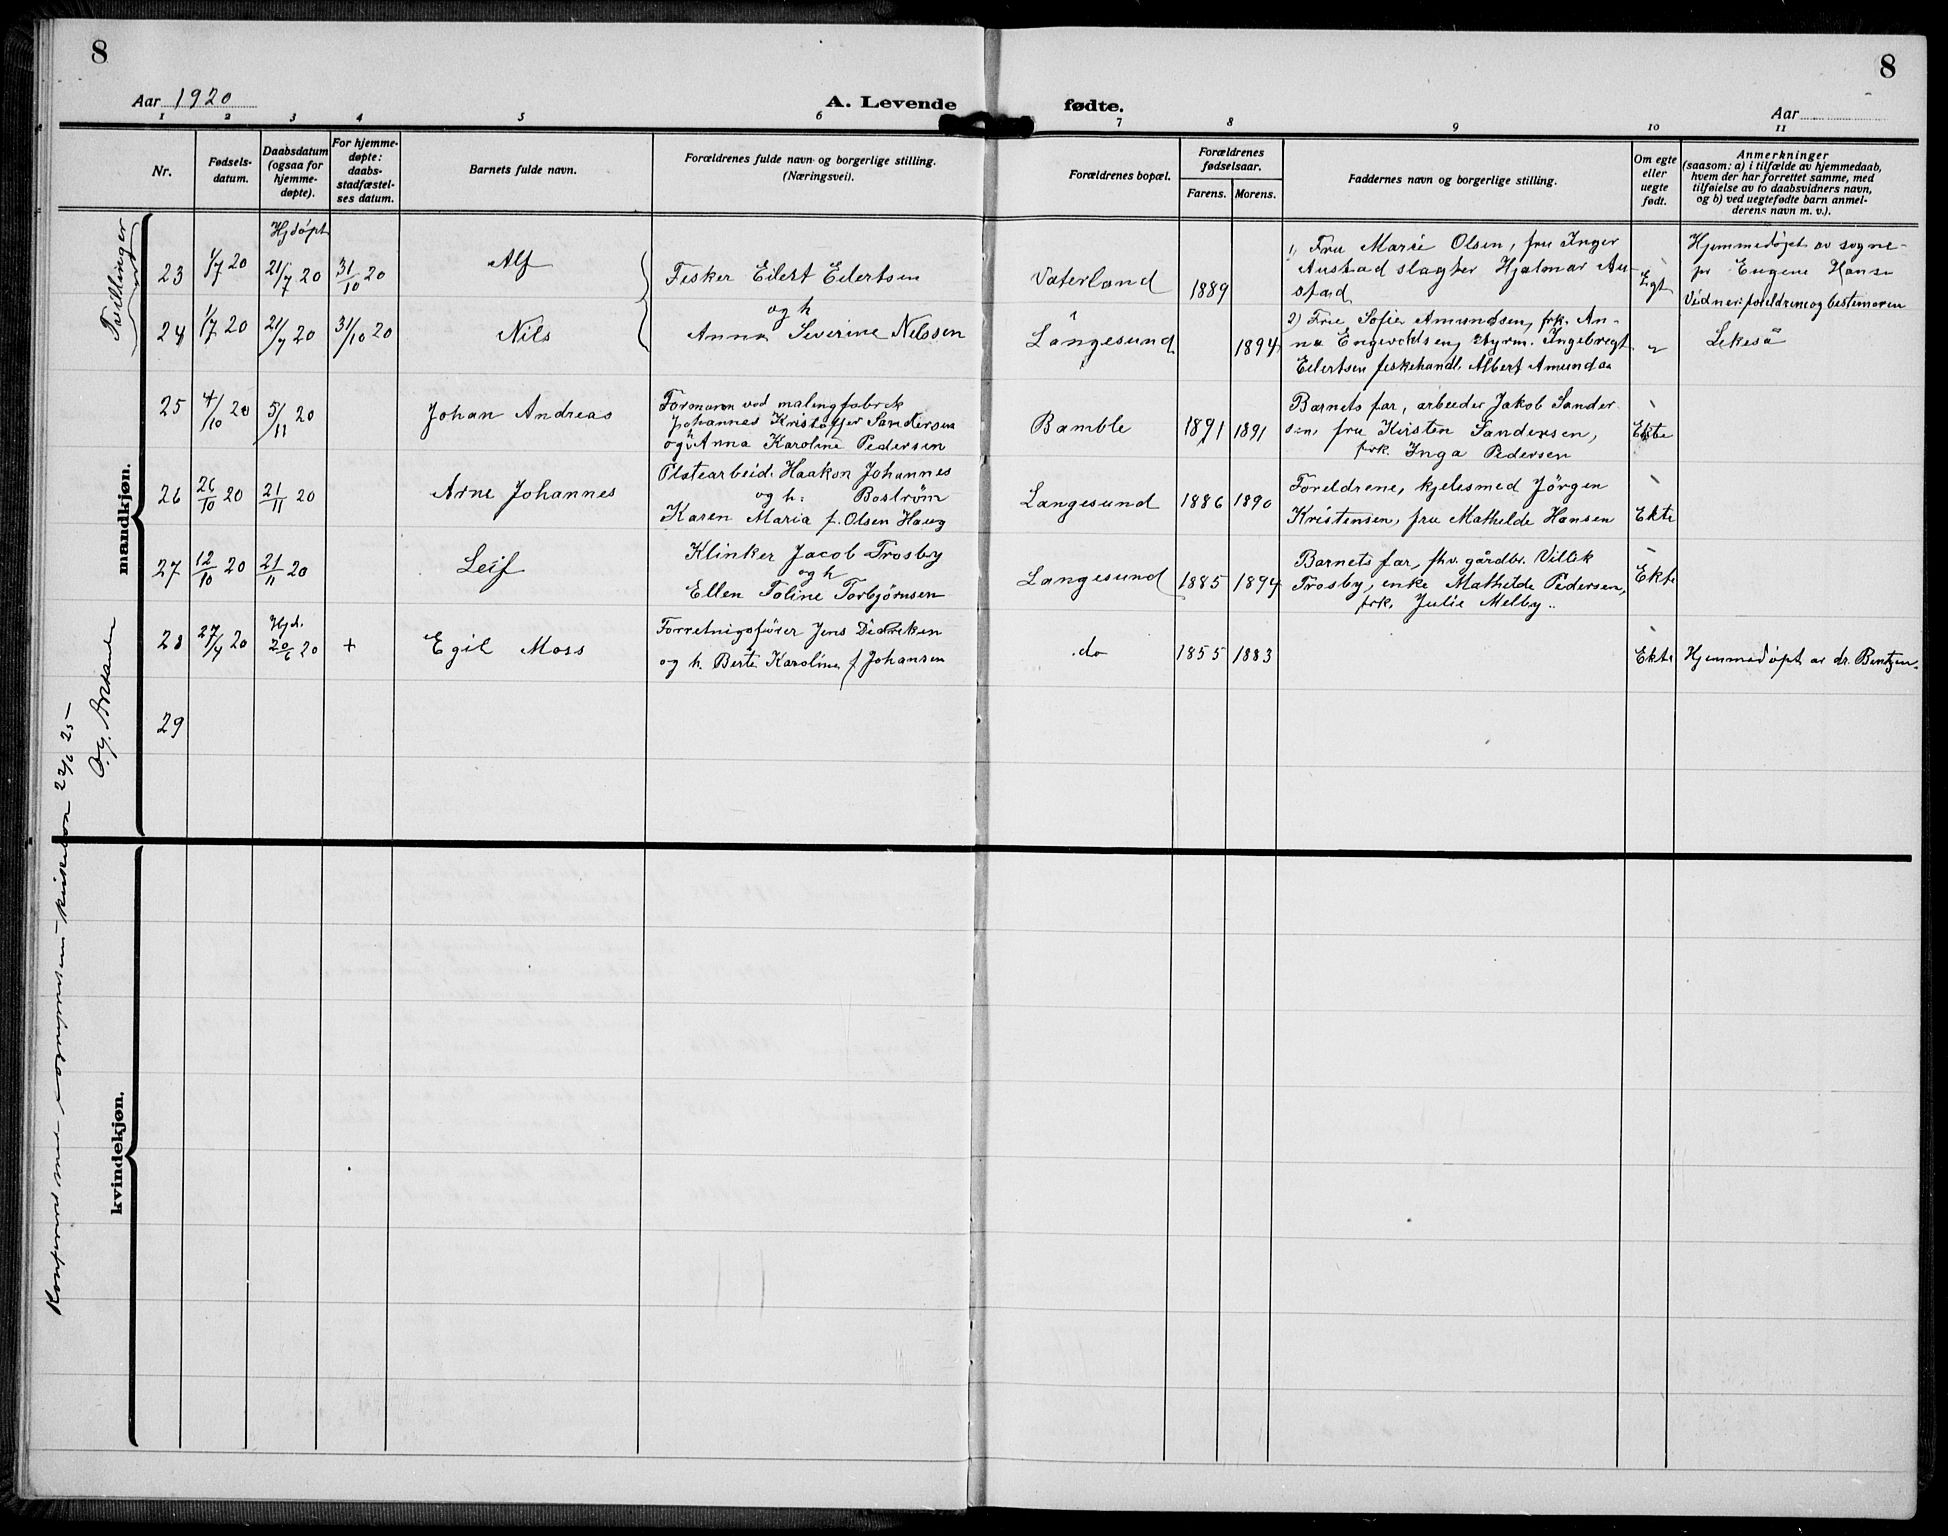 8
8
Aar 1920
A. Levende
fødte.
Aar
1 2 3 4 5 6 7 8 9 10 11
Nr.
Fødsels-
datum.
Daabsdatum
(ogsaa for
hjemme-
døpte).
For hjemme-
døpte:
daabs-
stadfæstel-
ses datum.
Barnets fulde navn.
Forældrenes fulde navn og borgerlige stilling.
(Næringsvei).
Forældrenes bopæl.
Forældrenes
fødselsaar.
Farens. Morens.
Faddernes navn og borgerlige stilling.
Om egte
eller
uegte
født.
Anmerkninger
(saasom: a) i tilfælde av hjemmedaab,
hvem der har forrettet samme, med
tilføielse av to daabsvidners navn,
og b) ved uegtefødte barn anmel-
derens navn m. v.).
Tvillinger
mandkjøn.
Hjdøpt
23 1/7 20 21/7 20 31/10 20 Alf
Fisker Eilert Eilertsen
og h
Vaterland 1889
1) Fru Marie Olsen, fru Inger
Austad slagter Hjalmar Au-
stad
Egt
Hjemmedøpt av sogne-
pr Eugene Hanse
Vidner: foreldrene og bestemoren
24 1/7 20 21/7 20 31/10 20 Nils
Anna Severine Nilssen
Langesund 1894
2) Frue Sofie Amundsen, frk. An-
na Engevoldsen, styrm. Ingebregt
Eilertsen fiskehandl. Albert Amunds
"
25 4/10 20 5/11 20 Johan Andreas
Formann ved malingfabrik
Johannes Kristoffer Sandersen
og Anna Karoline Pedersen
Bamble 1891 1891
Barnets far, arbeider Jakob Sander-
sen, fru Kirsten Sandersen,
frk. Inga Pedersen
Ekte
26 26/10 20 21/11 20 Arne Johannes
Platearbeid. Haakon Johannes
og h: Bostrøm
Karen Maria f. Olsen Haug
Langesund 1886 1890
Foreldrene, kjelesmed Jörgen
Kristensen, fru Mathilde Hansen
Ekte
27 12/10 20 21/11 20 Leif
Klinker Jacob Trosby
og h
Ellen Toline Torbjørnsen
Langesund 1885 1894
Barnets far, fhv. gårdbr. Villik
Trosby, enke Mathilde Pedersen,
frk. Julie Melby.
Ekte
Hjd.
28 27/4 20 20/6 20 + Egil Moss
Forretnigsfører Jens Didriksen
og h. Berte Karoline f Johansen
do 1855 1883
Ekte
Hjemmedøpt av dr. Bentzen.
29
kvindekjøn.